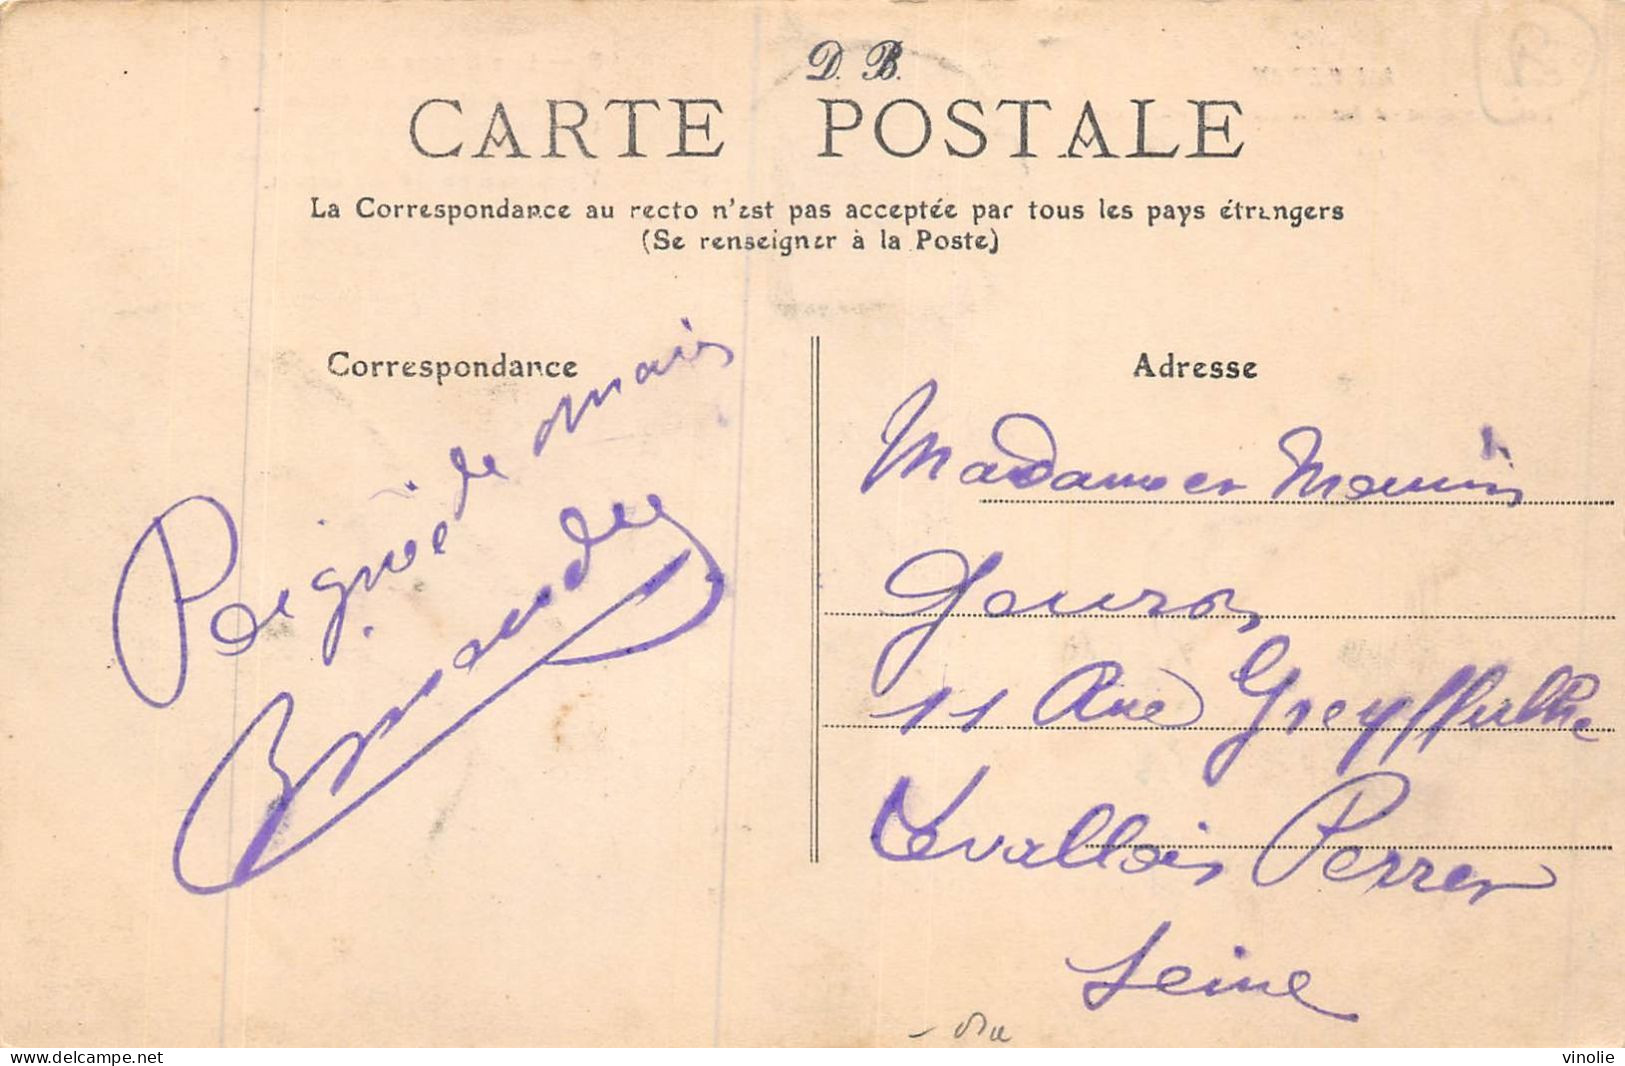 D. B.
CARTE POSTALE
La Correspondance au recto n'est pas acceptée par tous les pays étrangers
(Se renseigner à la Poste)
Correspondance
Adresse
Poignée de mains
Madame
11 Rue Greyffulhe
Levallois Perret
Seine
delcampe.net
vinolie